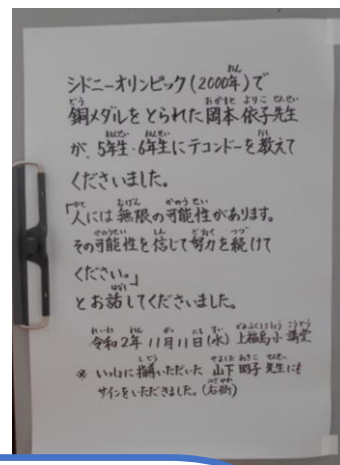 シドニーオリンピック(2000年)で
銅メダルをとられた岡本依子先生
が、5年生・6年生にテコンドーを教えて
くださいました。
「人には無限の可能性があります。
その可能性を信じて努力を続けて
ください。」
とお話してくださいました。
令和2年11月11日(水)上福島小 講堂
※ いっしょに指導いただいた 山下 先生にも
サインをいただきました。(右側)